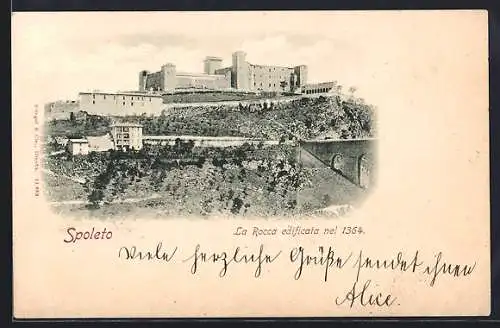 Spoleto
La Rocca edificata nel 1364.
Viele herzliche Grüße sendet ihn
Alice.